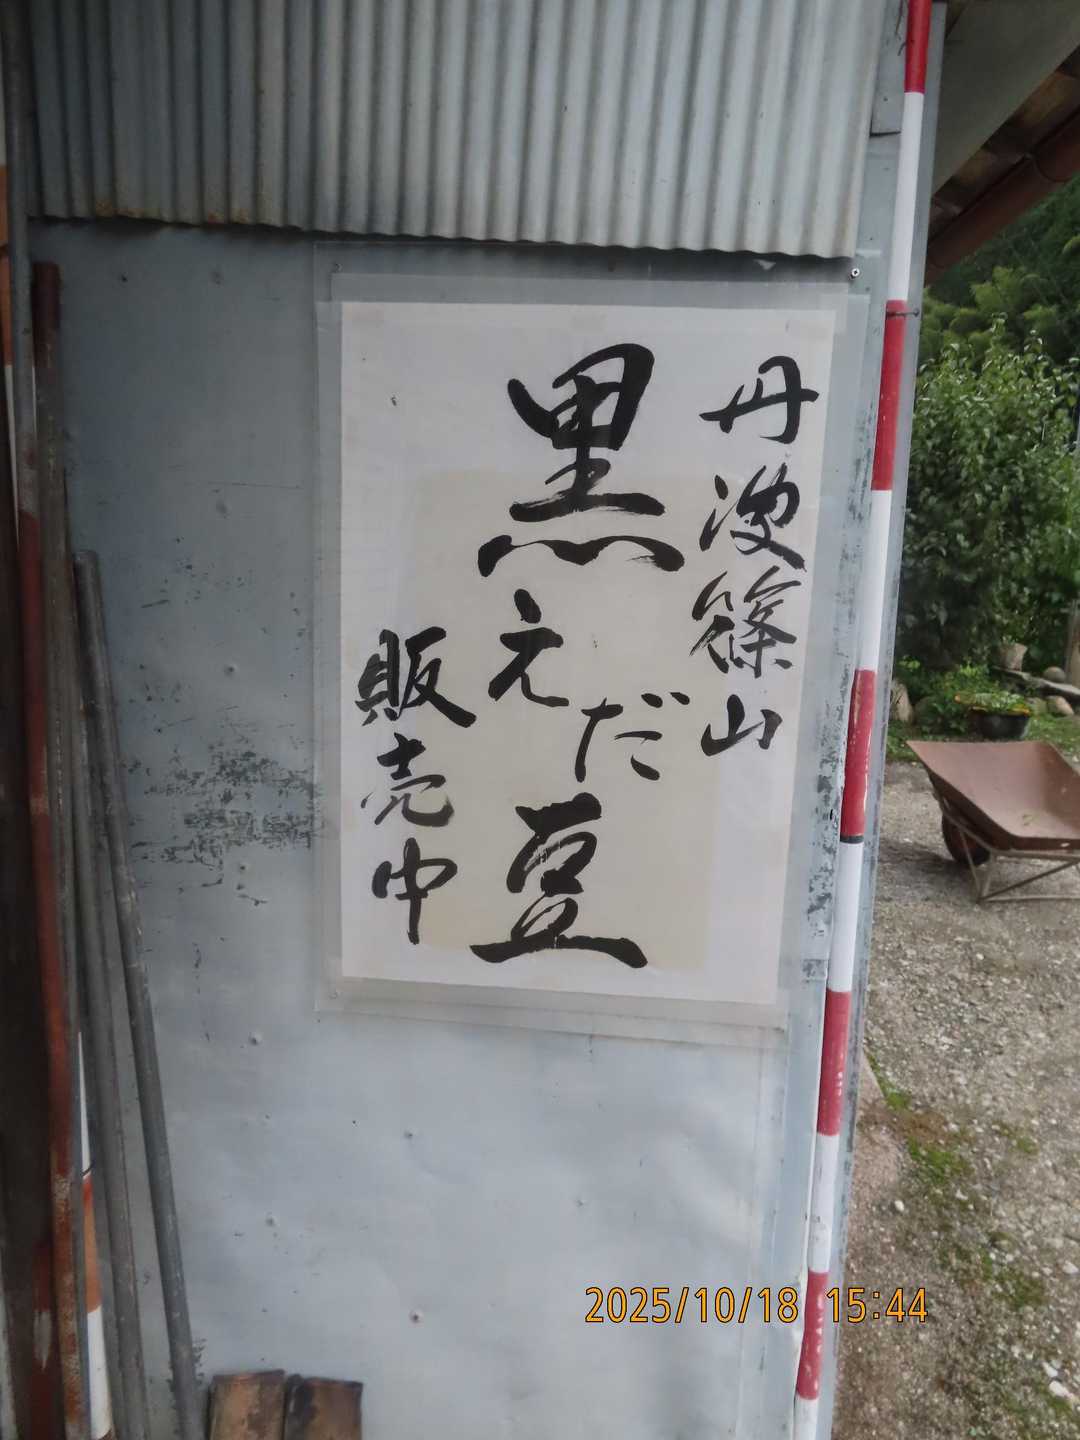 丹波篠山
黒えだ豆
販売中
2025/10/18 15:44